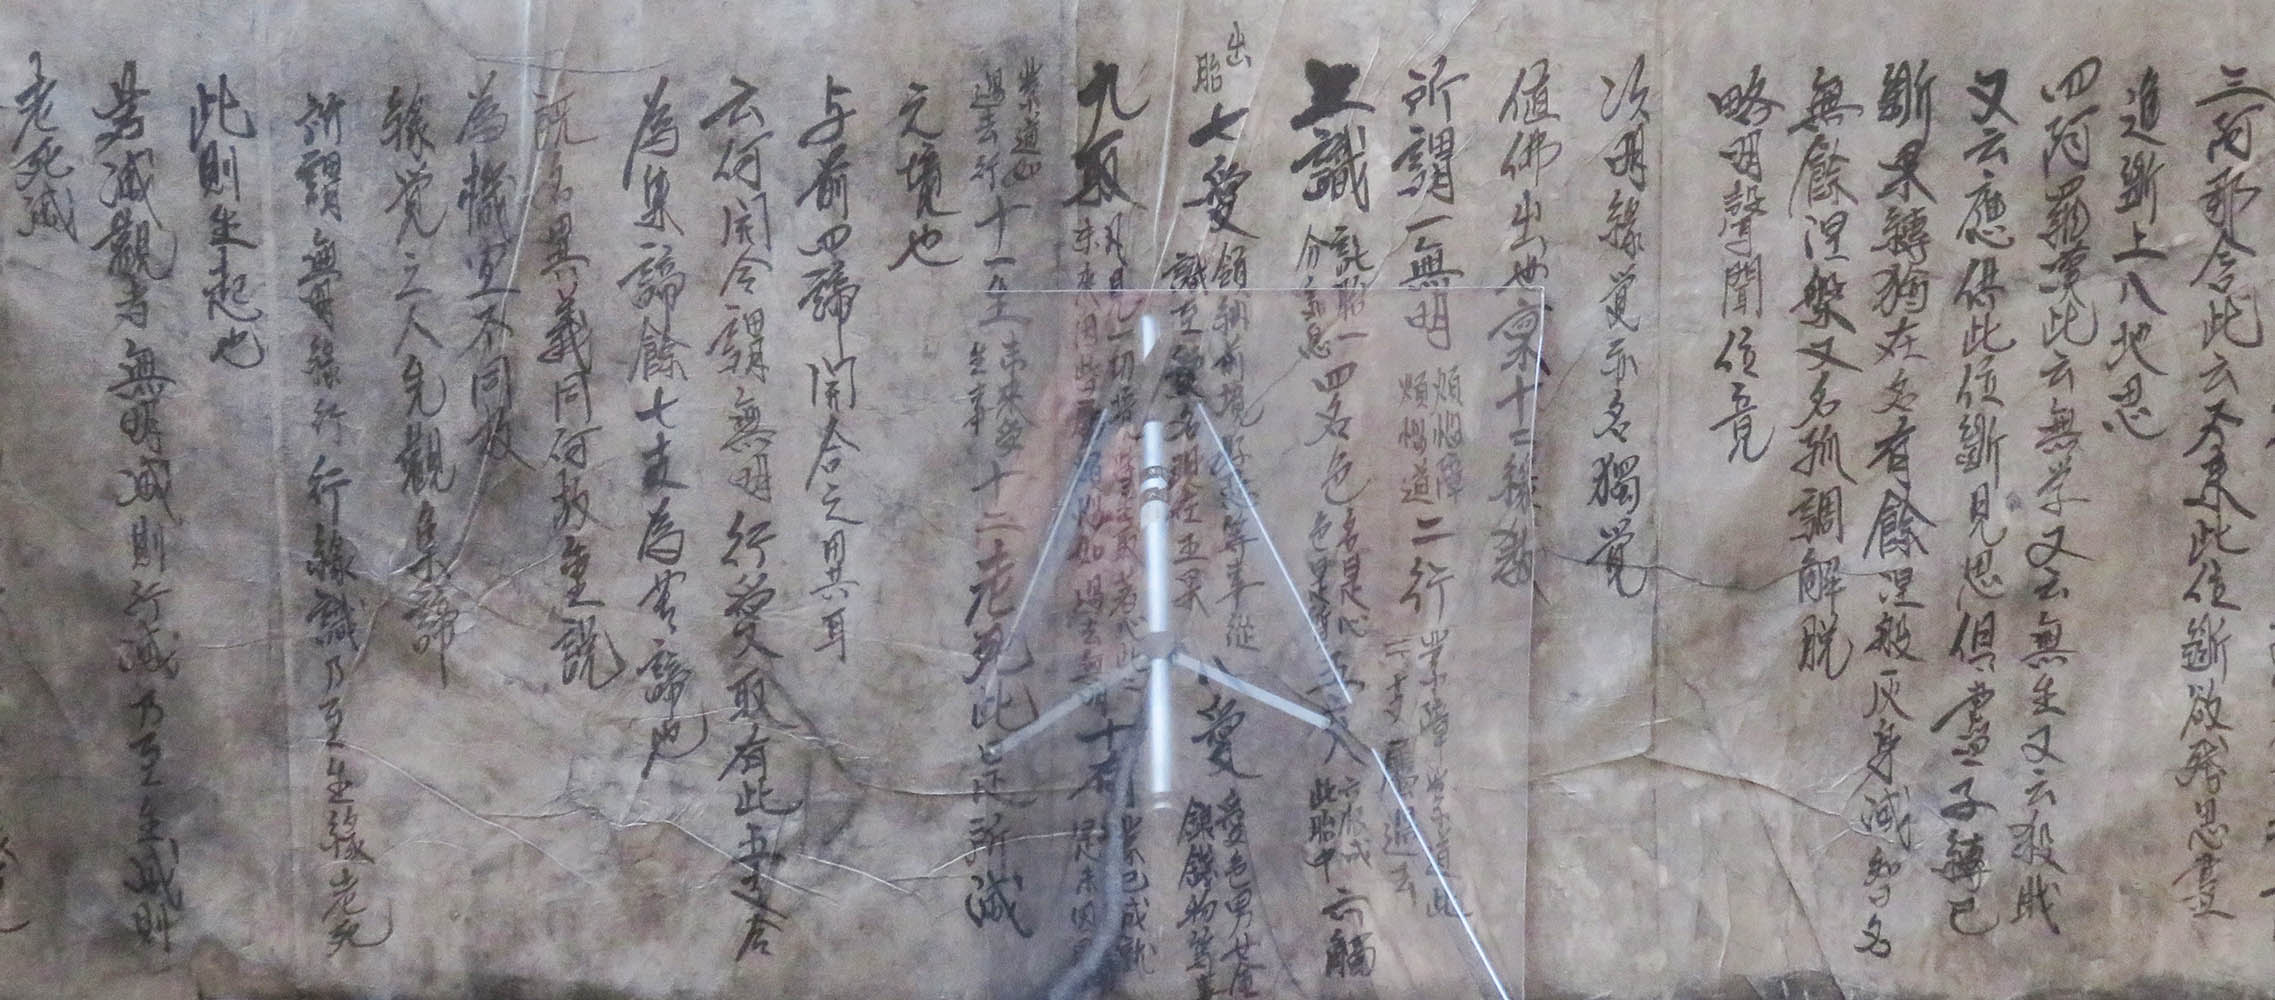 三阿那含此云不来此位斷欲残思盡
進斷上八地思
四阿羅漢此云無学又云無生又云殺賊
又云應供此位斷見思俱盡子縛已
斷果縛猶在名有餘涅槃灰身滅智名
無餘涅槃又名孤調解脱
略明聲聞位竟
次明緣覺亦名獨覺
值佛出世稟十二緣教
所謂一無明
煩惱障
煩惱道
二行
業障業道此
二支屬過去
三識
託胎一
分氣息
四名色
名是心
色是
五六入
六根成
此胎中
六觸
出胎
七受
領納前境好惡等事從
識至受名現在五果
八愛
愛色男女金
銀錢物等事
九取
凡見一切境皆生取著心此二
未来因皆属煩惱如過去無明
十有
業已成就
是未来因
業道如
過去行
十一生
未来受
生事
十二老死此是所滅
之境也
与前四諦開合之異耳
云何開合謂無明行愛取有此五合
為集諦餘七支為苦諦也
既名異義同何故重説
為機宜不同故
緣覺之人先觀集諦
所謂無明緣行行緣識乃至生緣老死
此則生起也
若滅觀者無明滅則行滅乃至生滅則
老死滅